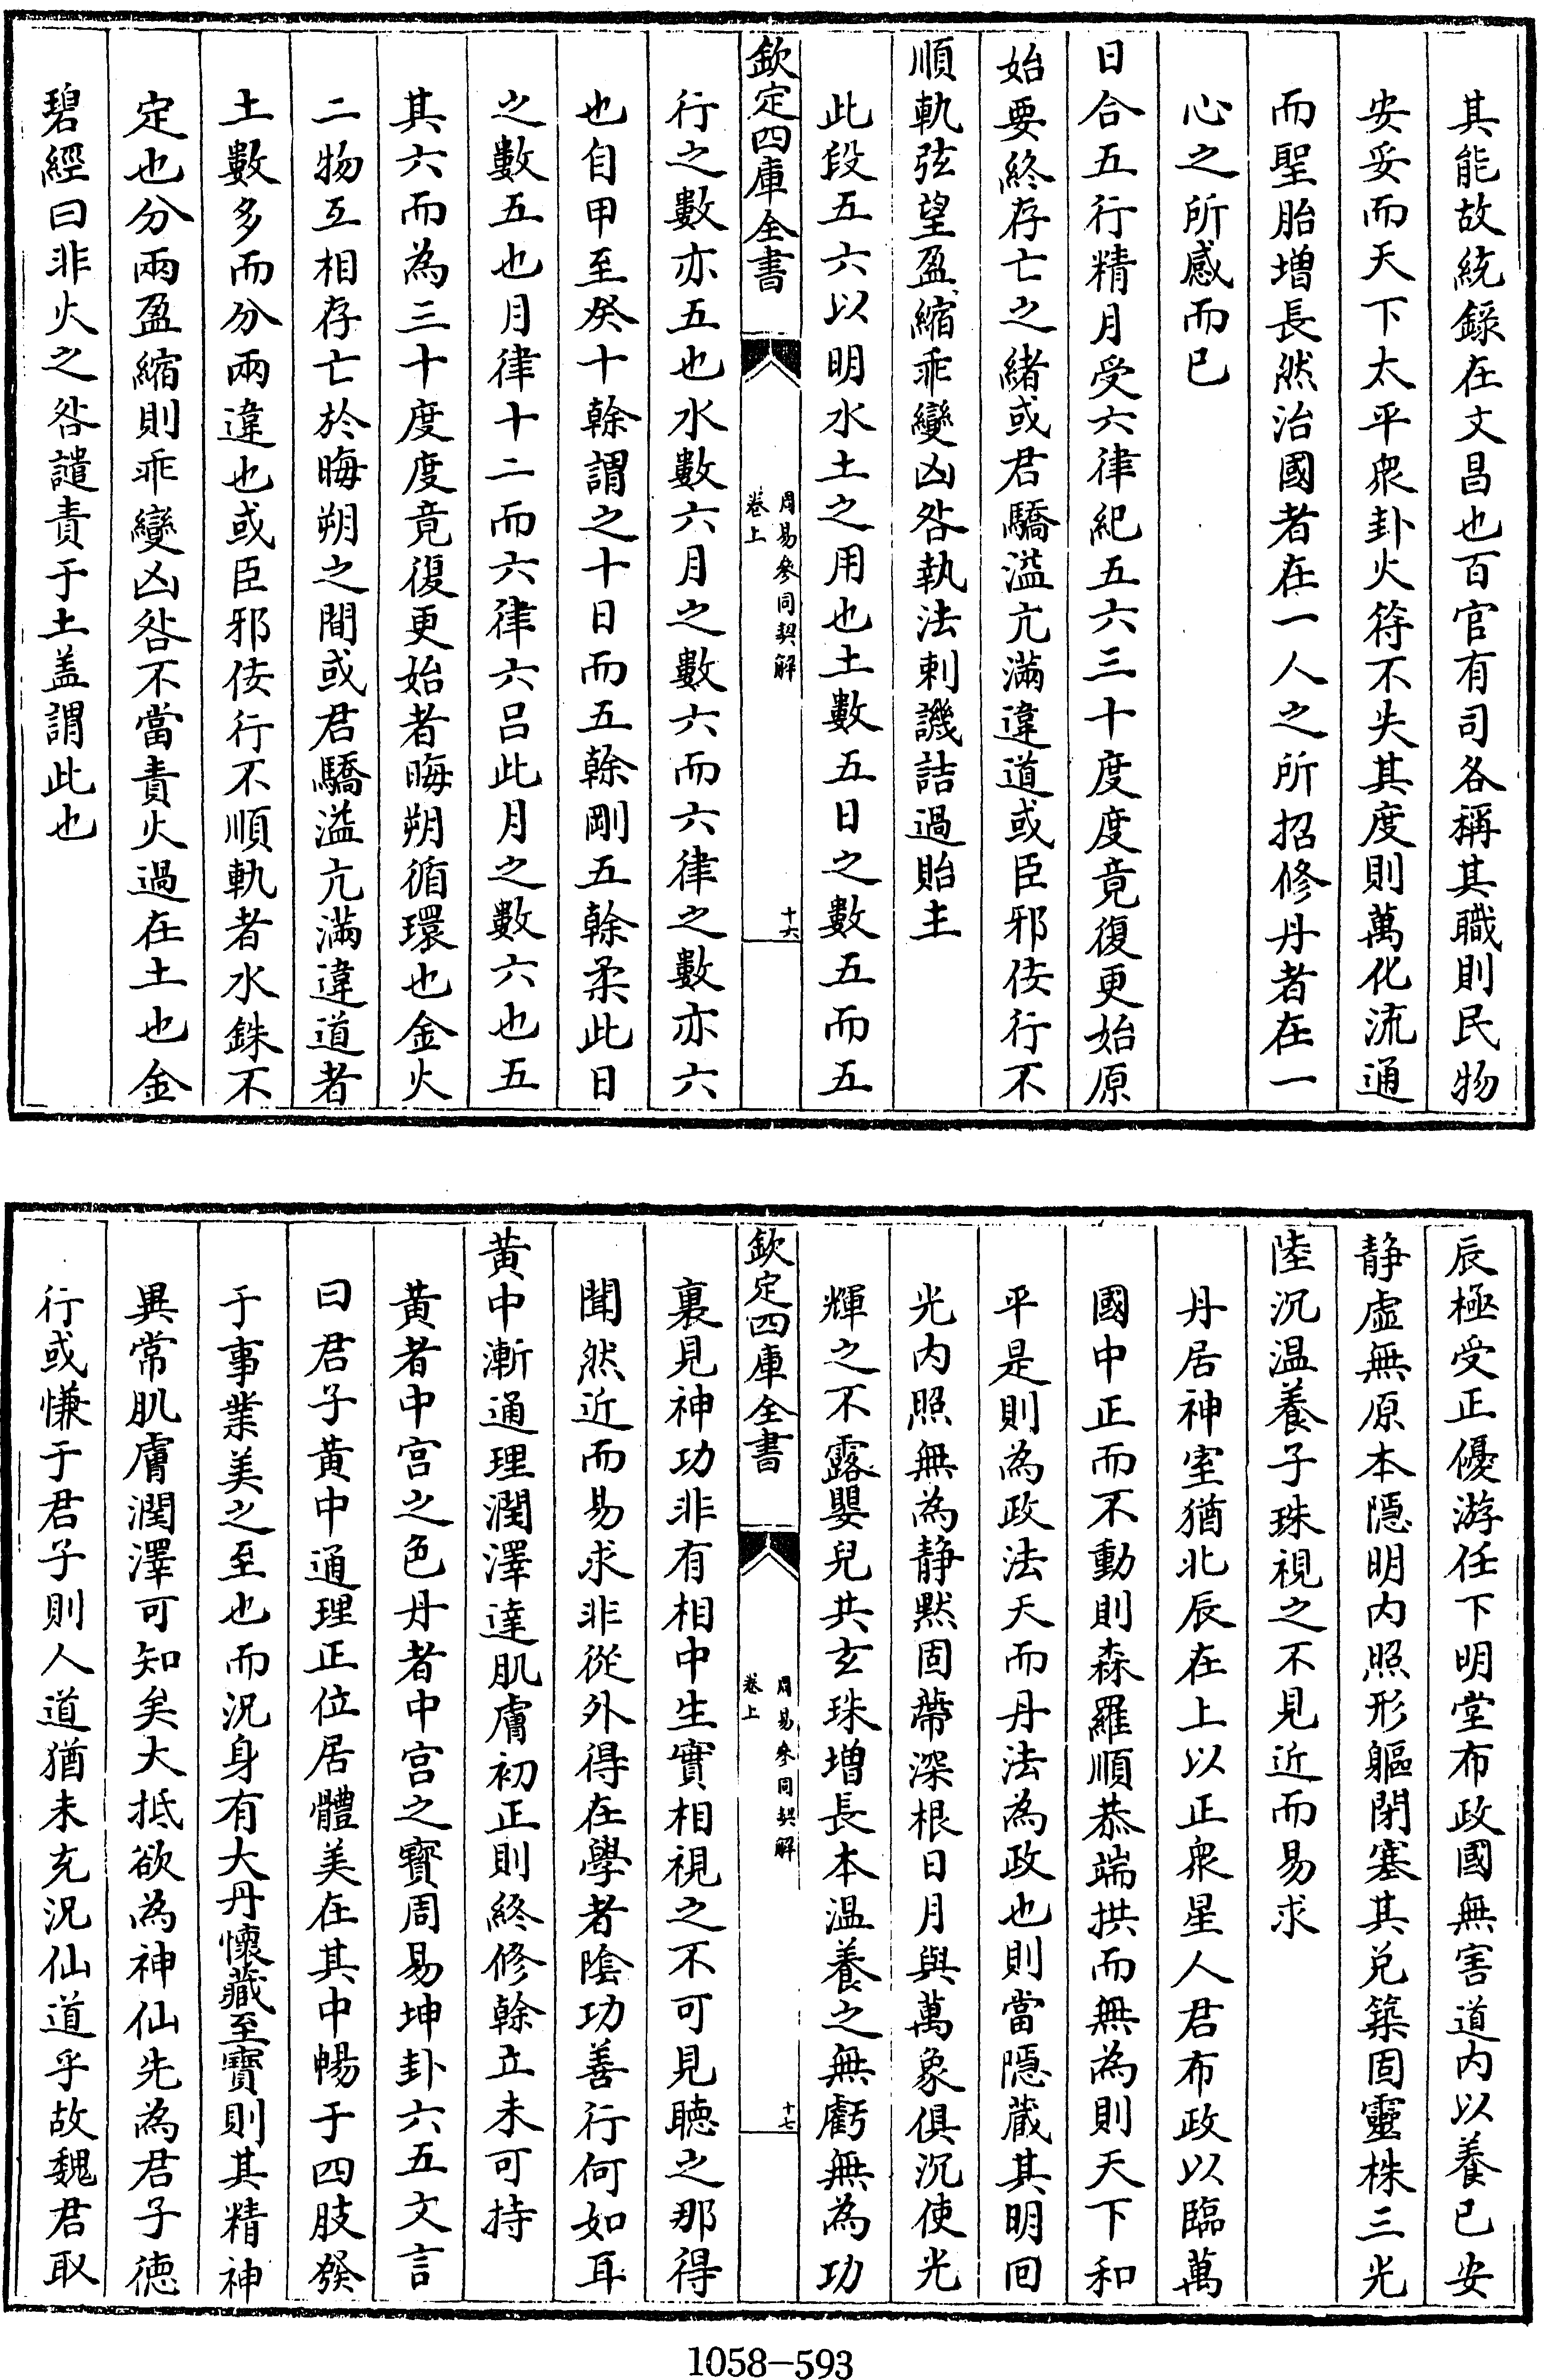 其能故統錄在文昌也百官有司各稱其職則民物
安妥而天下太平衆卦火符不失其度則萬化流通
而聖胎增長然治國者在一人之所招修丹者在一
心之所感而已
日合五行精月受六律紀五六三十度度竟復更始原
始要終存亡之緒或君驕溢亢滿違道或臣邪佞行不
順軌弦望盈縮乖變凶咎執法刺譏詰過貽主
此段五六以明水土之用也土數五日之數五而五
欽定四庫全書
周易參同契解
卷上
十六
行之數亦五也水數六月之數六而六律之數亦六
也自甲至癸十榦謂之十日而五榦剛五榦柔此日
之數五也月律十二而六律六呂此月之數六也五
其六而為三十度度竟復更始者晦朔循環也金火
二物互相存亡於晦朔之間或君驕溢亢滿違道者
土數多而分兩違也或臣邪佞行不順軌者水銖不
定也分兩盈縮則乖變凶咎不當責火過在土也金
碧經曰非火之咎譴責于土盖謂此也
辰極受正優游任下明堂布政國無害道内以養已安
静虛無原本隠明内照形軀閉塞其兑築固靈株三光
陸沉温養子珠視之不見近而易求
丹居神室猶北辰在上以正衆星人君布政以臨萬
國中正而不動則森羅順恭端拱而無為則天下和
平是則為政法天而丹法為政也則當隠蔵其明回
光内照無為静黙固蔕深根日月與萬象俱沉使光
輝之不露嬰兒共玄珠增長本温養之無虧無為功
欽定四庫全書
周易參同契解
卷上
十七
裏見神功非有相中生實相視之不可見聴之那得
聞然近而易求非從外得在學者陰功善行何如耳
黄中漸通理潤澤達肌膚初正則終修榦立未可持
黄者中宫之色丹者中宫之寳周易坤卦六五文言
曰君子黄中通理正位居體美在其中暢于四肢發
于事業美之至也而況身有大丹懷藏至寳則其精神
異常肌膚潤澤可知矣大抵欲為神仙先為君子徳
行或慊于君子則人道猶未充況仙道乎故魏君取
1058-593